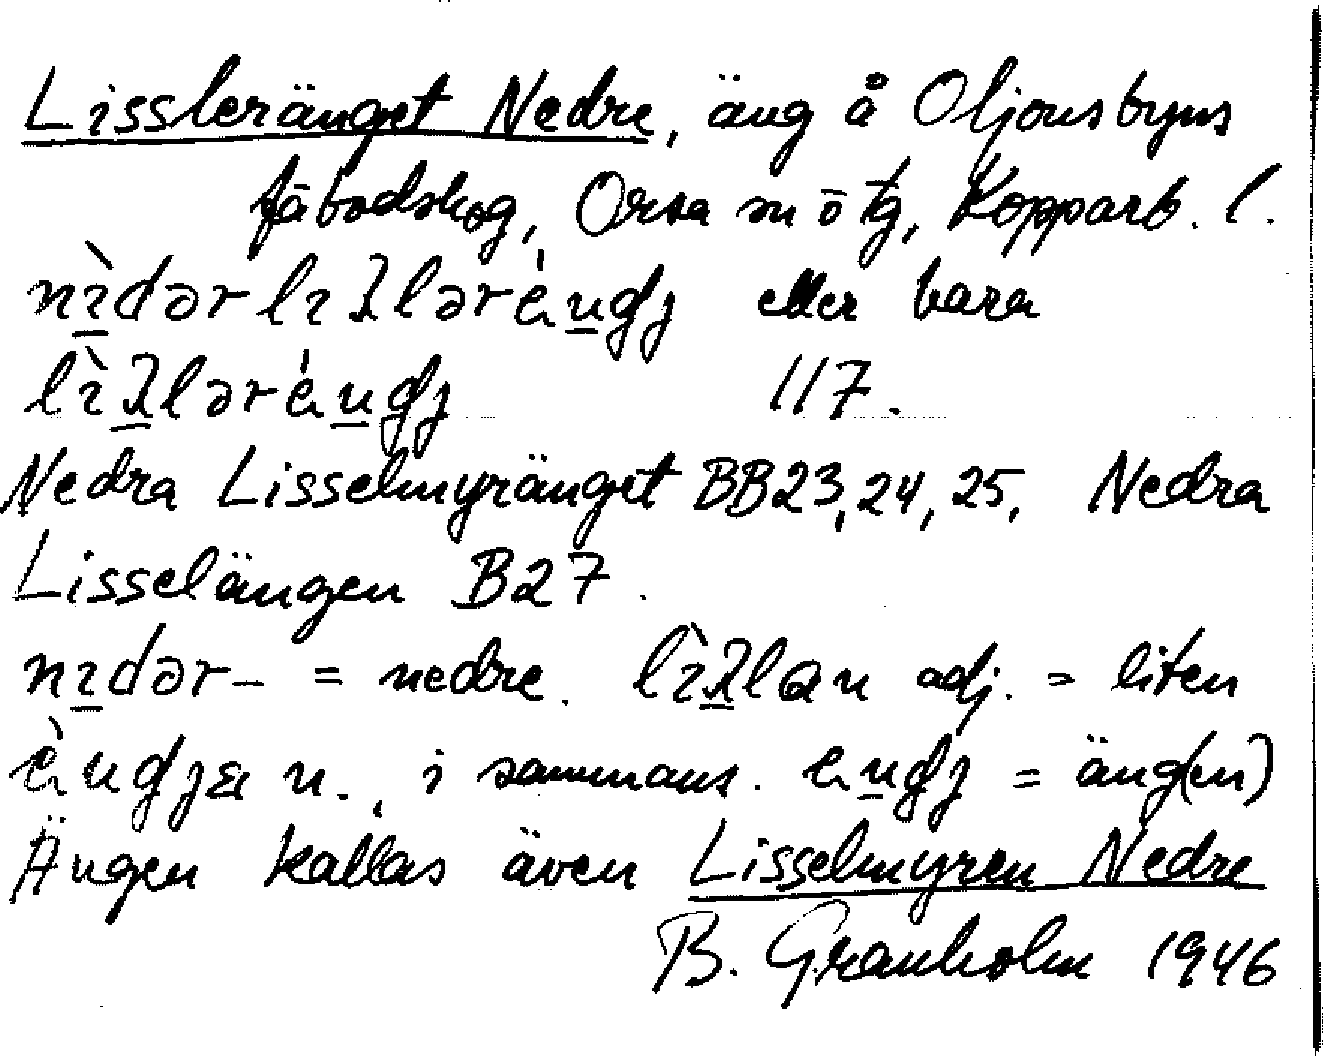 Lissleränget Nedre, äng å Oljonsbyns
fäbodskog, Orsa sn ö tg, Kopparb. l.
nìdər lıλləréngj eller bara
lìλləréngj 117.
Nedra Lisselmyränget BB23, 24, 25, Nedra
Lisselängen B27.
nıdər- = nedre. lìλlan adj. = liten
n., i sammans. = äng(en)
Ängen kallas även Lisselmyren Nedre
B. Granholm 1946